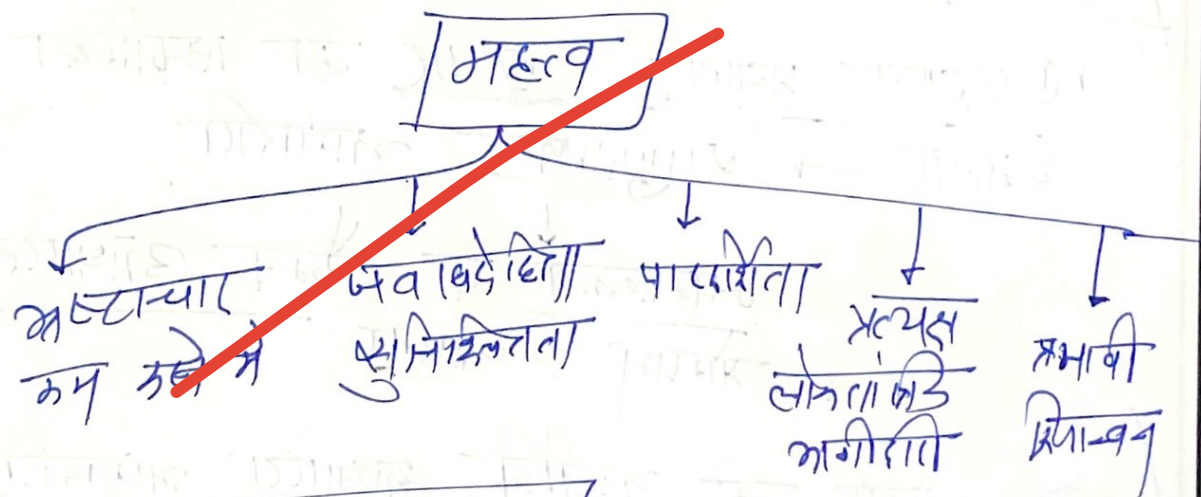 महत्व
भ्रष्टाचार
कम करने में
जवाबदेहिता
सुनिश्चितता
पारदर्शिता
प्रत्यक्ष
लोकतांत्रिक
भागीदारी
प्रभावी
क्रियान्वयन